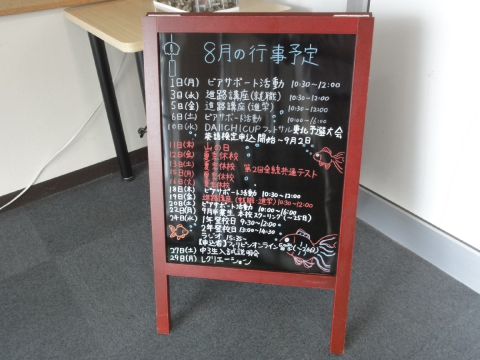 8月の行事予定
1日(月) ピアサポート活動 10:30~12:00
3日(水) 進路講座(就職) 10:30~12:00
5日(金) 進路講座(進学) 10:30~12:00
6日(土) ピアサポート活動 10:00~16:00
10日(水) DAIICHI CUP フットサル 東北予選大会
英語検定申込開始~9月2日
11日(木) 山の日
12日(金) 夏季休校
13日(土) 夏季休校 第2回全統共通テスト
15日(月) 夏季休校
16日(火) 夏季休校
18日(木) ピアサポート活動 10:30~12:00
19日(金) 進路講座(就職・進学) 10:30~12:00
20日(土) ピアサポート活動 10:00~16:00
22日(月) 9月卒業生 本校スクーリング(~25日)
24日(水) 1年登校日 9:30~12:00
2年登校日 13:00~14:30
ラジオ 15:25~
【申込者】フィリピンオンライン留学
27日(土) 中3生入試説明会
29日(月) レクリエーション